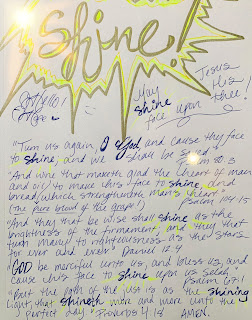 Shine!
Jesus
May
this
shine
thee!
face upon
"Turn us again, O God, and cause thy face
to shine; and we shall be saved."
Psalm 80:3
"And wine that maketh glad the heart of man
and oil to make his face to shine, and
bread which strengtheneth man's heart."
(The pure blood of the grape!)
Psalm 104:15
"And they that be wise shall shine as the
brightness of the firmament; and they that
turn many to righteousness as the stars
for ever and ever." Daniel 12:3
"GOD be merciful unto us, and bless us; and
cause his face to shine upon us Selah."
Psalm 67:1
"But the path of the just is as the shining
light, that shineth more and more unto the
perfect day." Proverbs 4:18 AMEN.